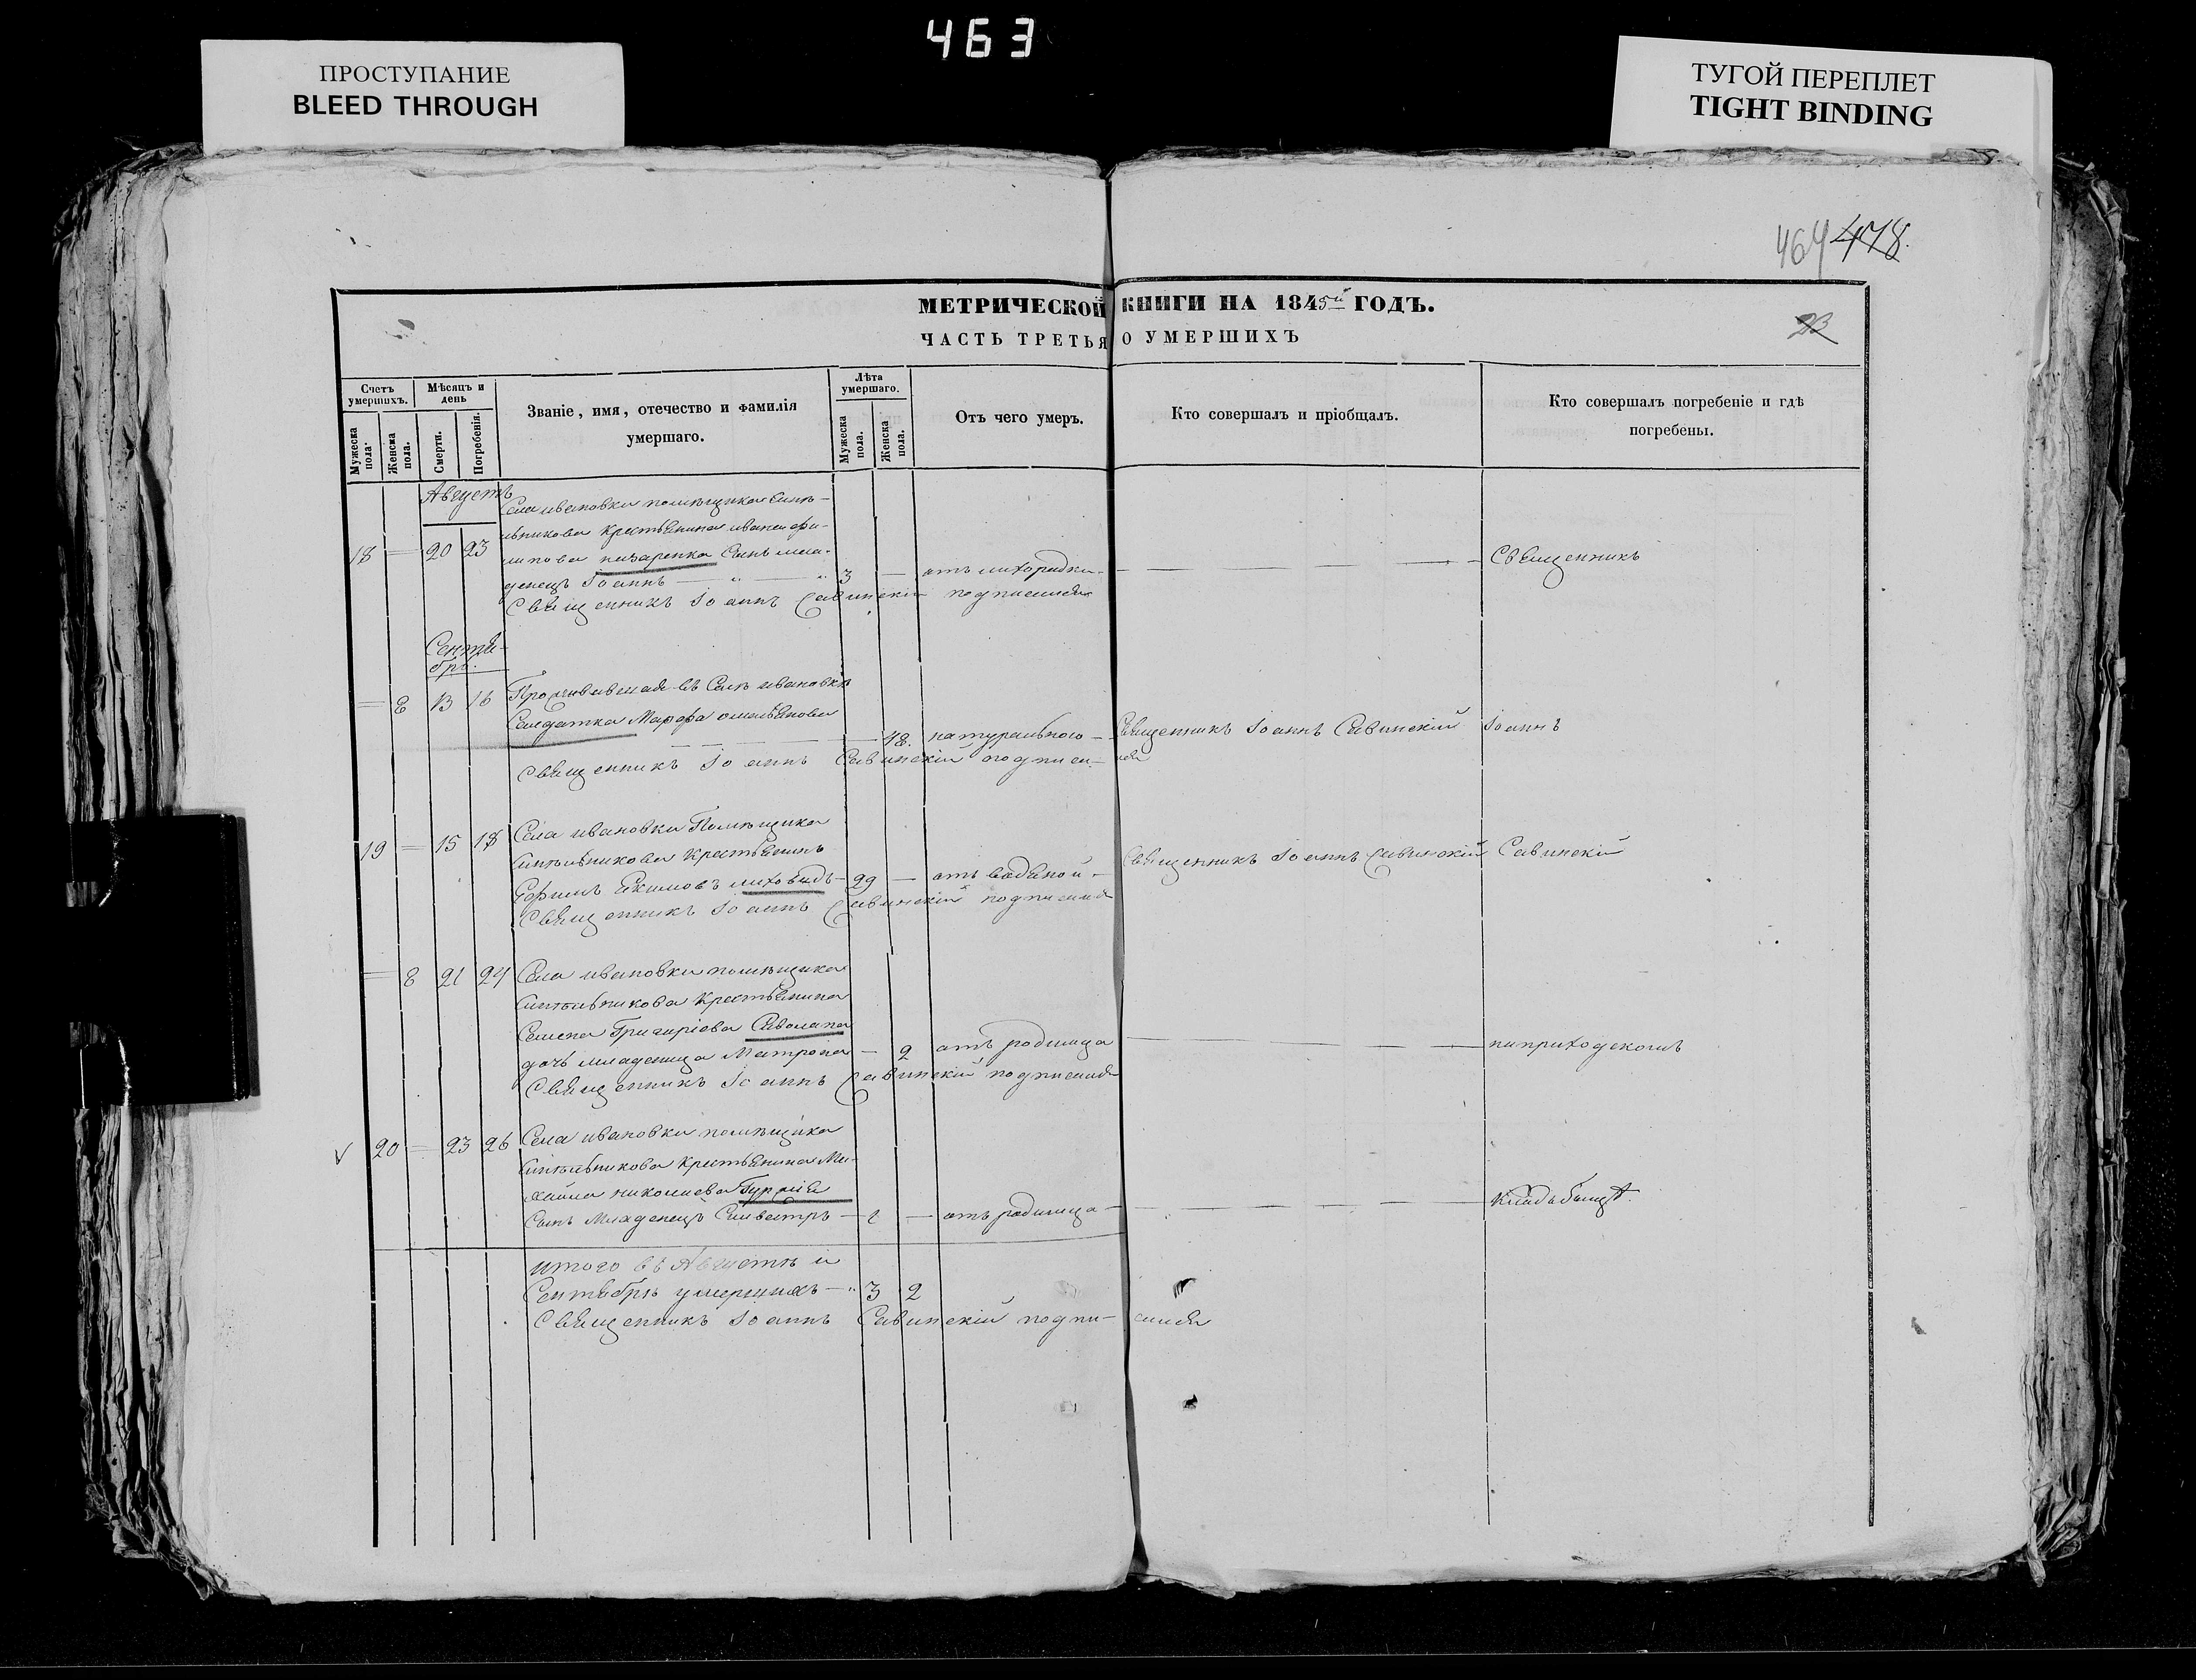 463
ПРОСТУПАНИЕ
BLEED THROUGH
ТУГОЙ ПЕРЕПЛЕТ
TIGHT BINDING
464 478.
МЕТРИЧЕСКОЙ КНИГИ НА 1845й ГОДЪ.
23
ЧАСТЬ ТРЕТЬЯ О УМЕРШИХЪ
Счетъ умершихъ.
Мѣсяцъ и день
Званіе, имя, отечество и фамилія умершаго.
Лѣта умершаго.
Отъ чего умеръ.
Кто совершалъ и пріобщалъ.
Кто совершалъ погребеніе и гдѣ погребены.
Мужеска пола.
Женска пола.
Смерти.
Погребенія.
Мужеска пола.
Женска пола.
Августъ
Села ивановки помѣщика Синѣ-
льникова Крестьянина ивана фи-
18 = 20 23 липова писаренка Сынъ мла-
денецъ Іоаннъ — 3 — отъ лихорадки — Священникъ
Священникъ Іоаннъ Савинскій подписался
Сентя-
брь.
= 8 13 16 Проживавшая въ Селѣ ивановкѣ
Солдатка Марфа омельянова
48. натурально — Священникъ Іоаннъ Савинскій Іоаннъ
Священникъ Іоаннъ Савинскій подписа- лся
19 = 15 18 Села ивановки Помѣщика
Синѣльникова Крестьянинъ
Ефимъ Екимовъ лиховидъ — 29 — отъ водяной — Священникъ Іоаннъ Савинскій Савинскій
Священникъ Іоаннъ Савинскій подписался
= 8 21 24 Села ивановки помѣщика
Синѣльникова Крестьянина
Семена Григоріева Саволапа
дочь младеница Матрона — 2 отъ родимца — на приходскомъ
Священникъ Іоаннъ Савинскій подписался
√ 20 = 23 26 Села ивановки помѣщика
Синѣльникова Крестьянина Ми-
хайла николаева
Сынъ Младенецъ Силвестръ — 1 — отъ родимца — кладбищѣ.
итого въ Августѣ и
Сентябрѣ умершихъ — 3 2
Священникъ Іоаннъ Савинскій подпи- сался